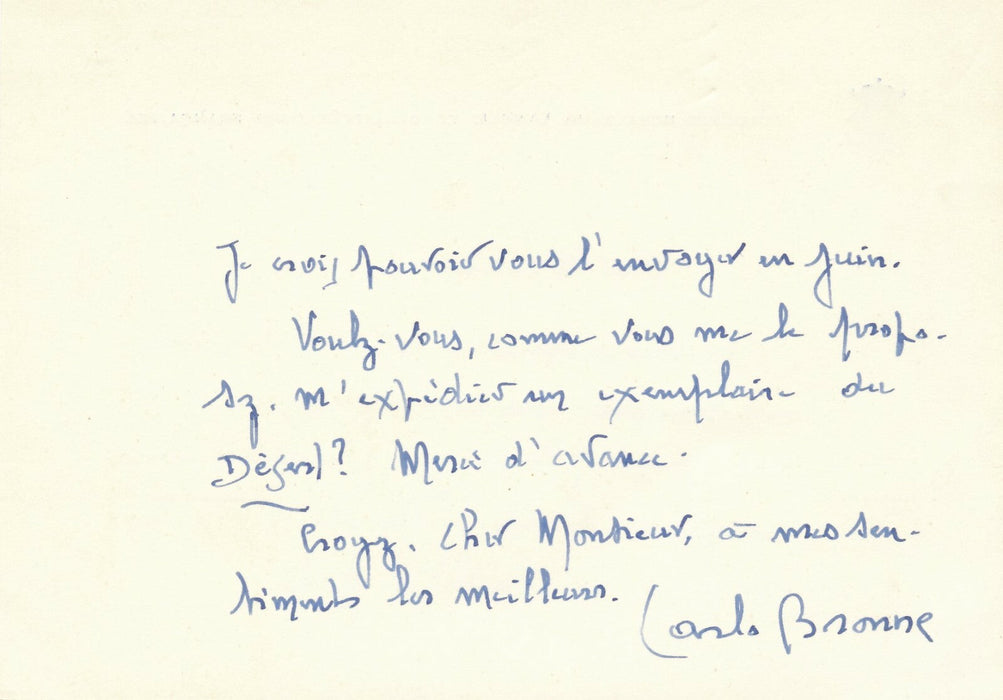 Je crois pouvoir vous l'envoyer en juin.
Voulez-vous, comme vous me le propo-
sez, m'expédier un exemplaire du
Merci d'avance.
Croyez, Cher Monsieur, à mes sen-
timents les meilleurs.
Carlo Bronne